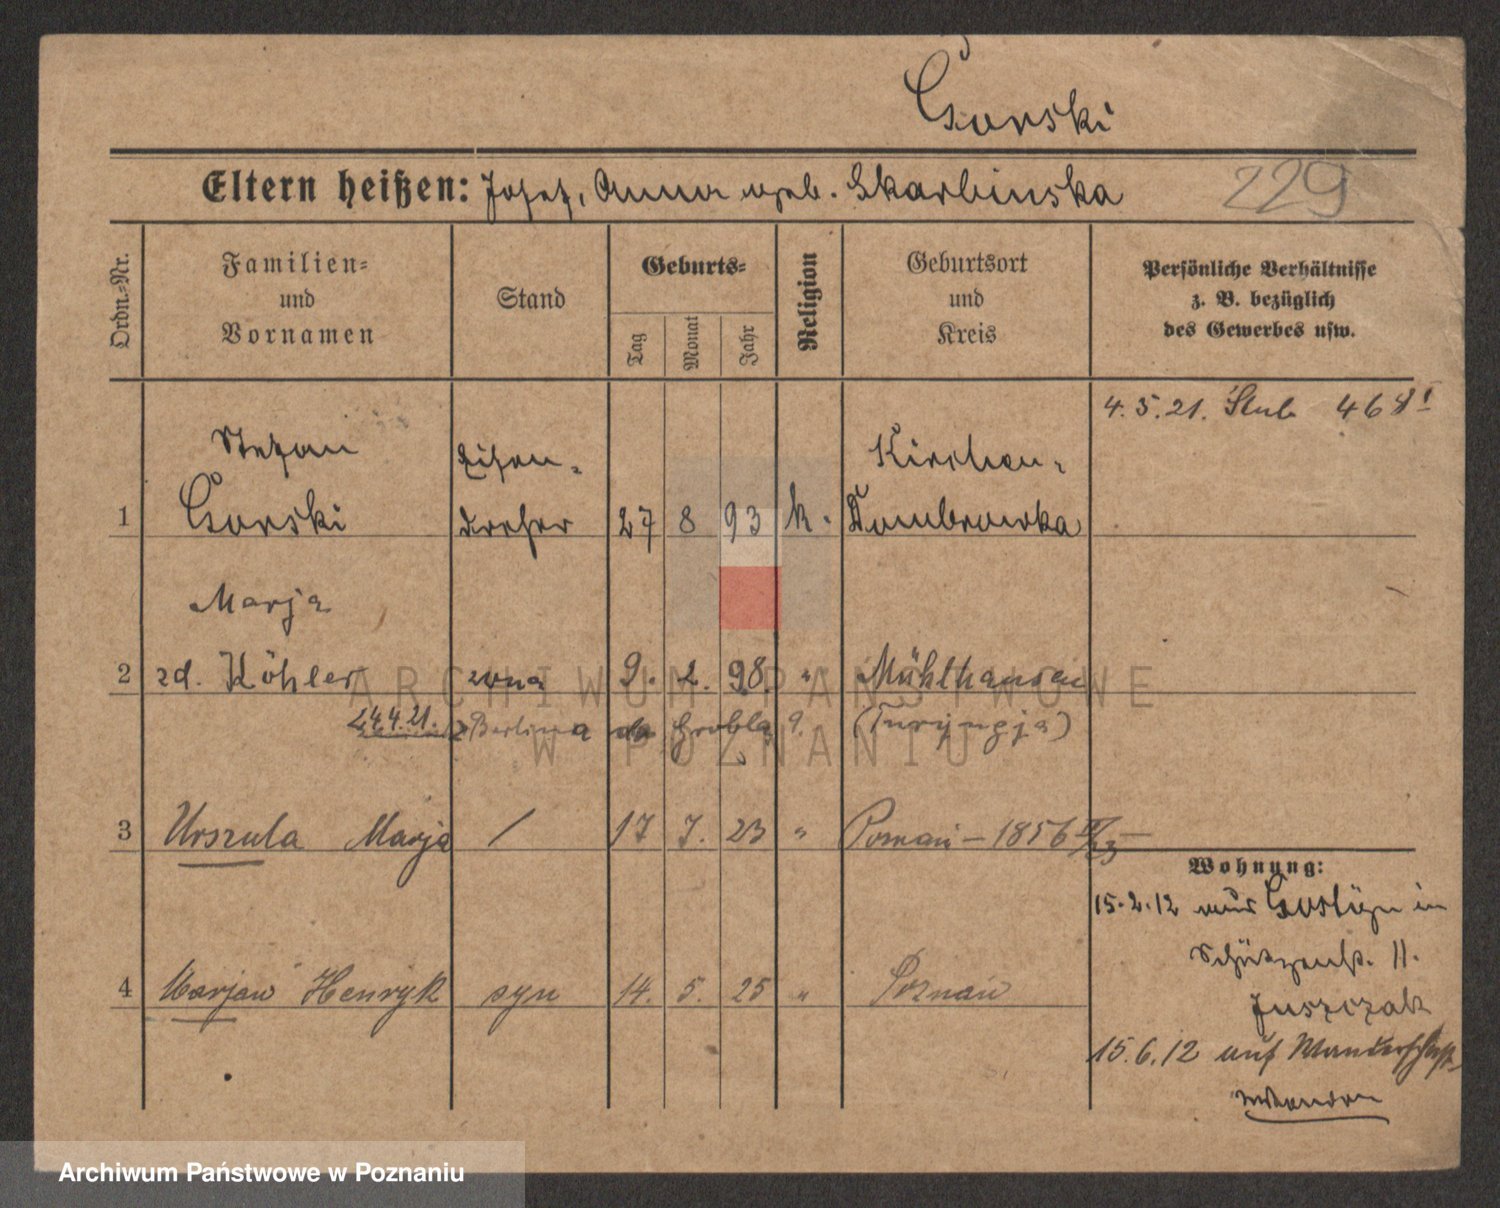 Górski
Eltern heißen: Josef, Anna geb. Skarbinska
229
Ordn.-Nr.
Familien-
und
Vornamen
Stand
Geburts-
Tag
Monat
Jahr
Religion
Geburtsort
und
Kreis
Persönliche Verhältnisse
z. B. bezüglich
des Gewerbes usw.
4.5.21. Stub 468
1
Stefan
Górski
Eisen-
dreher
27 8 93 k.
Kirchen-
Dombrowka
2
Marja
zd. Köhler
żona
9. 2. 98. "
Mühlhausen
24.4.21. z Berlina Grobla 9.
(Turyngja)
3 Urszula Marja / 17 7. 23 " Poznań - 1856
Wohnung:
15.2.12 aus Gostyn in
Schützenstr. 11.
Juszczak
15.6.12 auf Wanderschaft
4 Marjan Henryk syn 14. 5. 25 " Poznań
ARCHIWUM PAŃSTWOWE
W POZNANIU
Archiwum Państwowe w Poznaniu